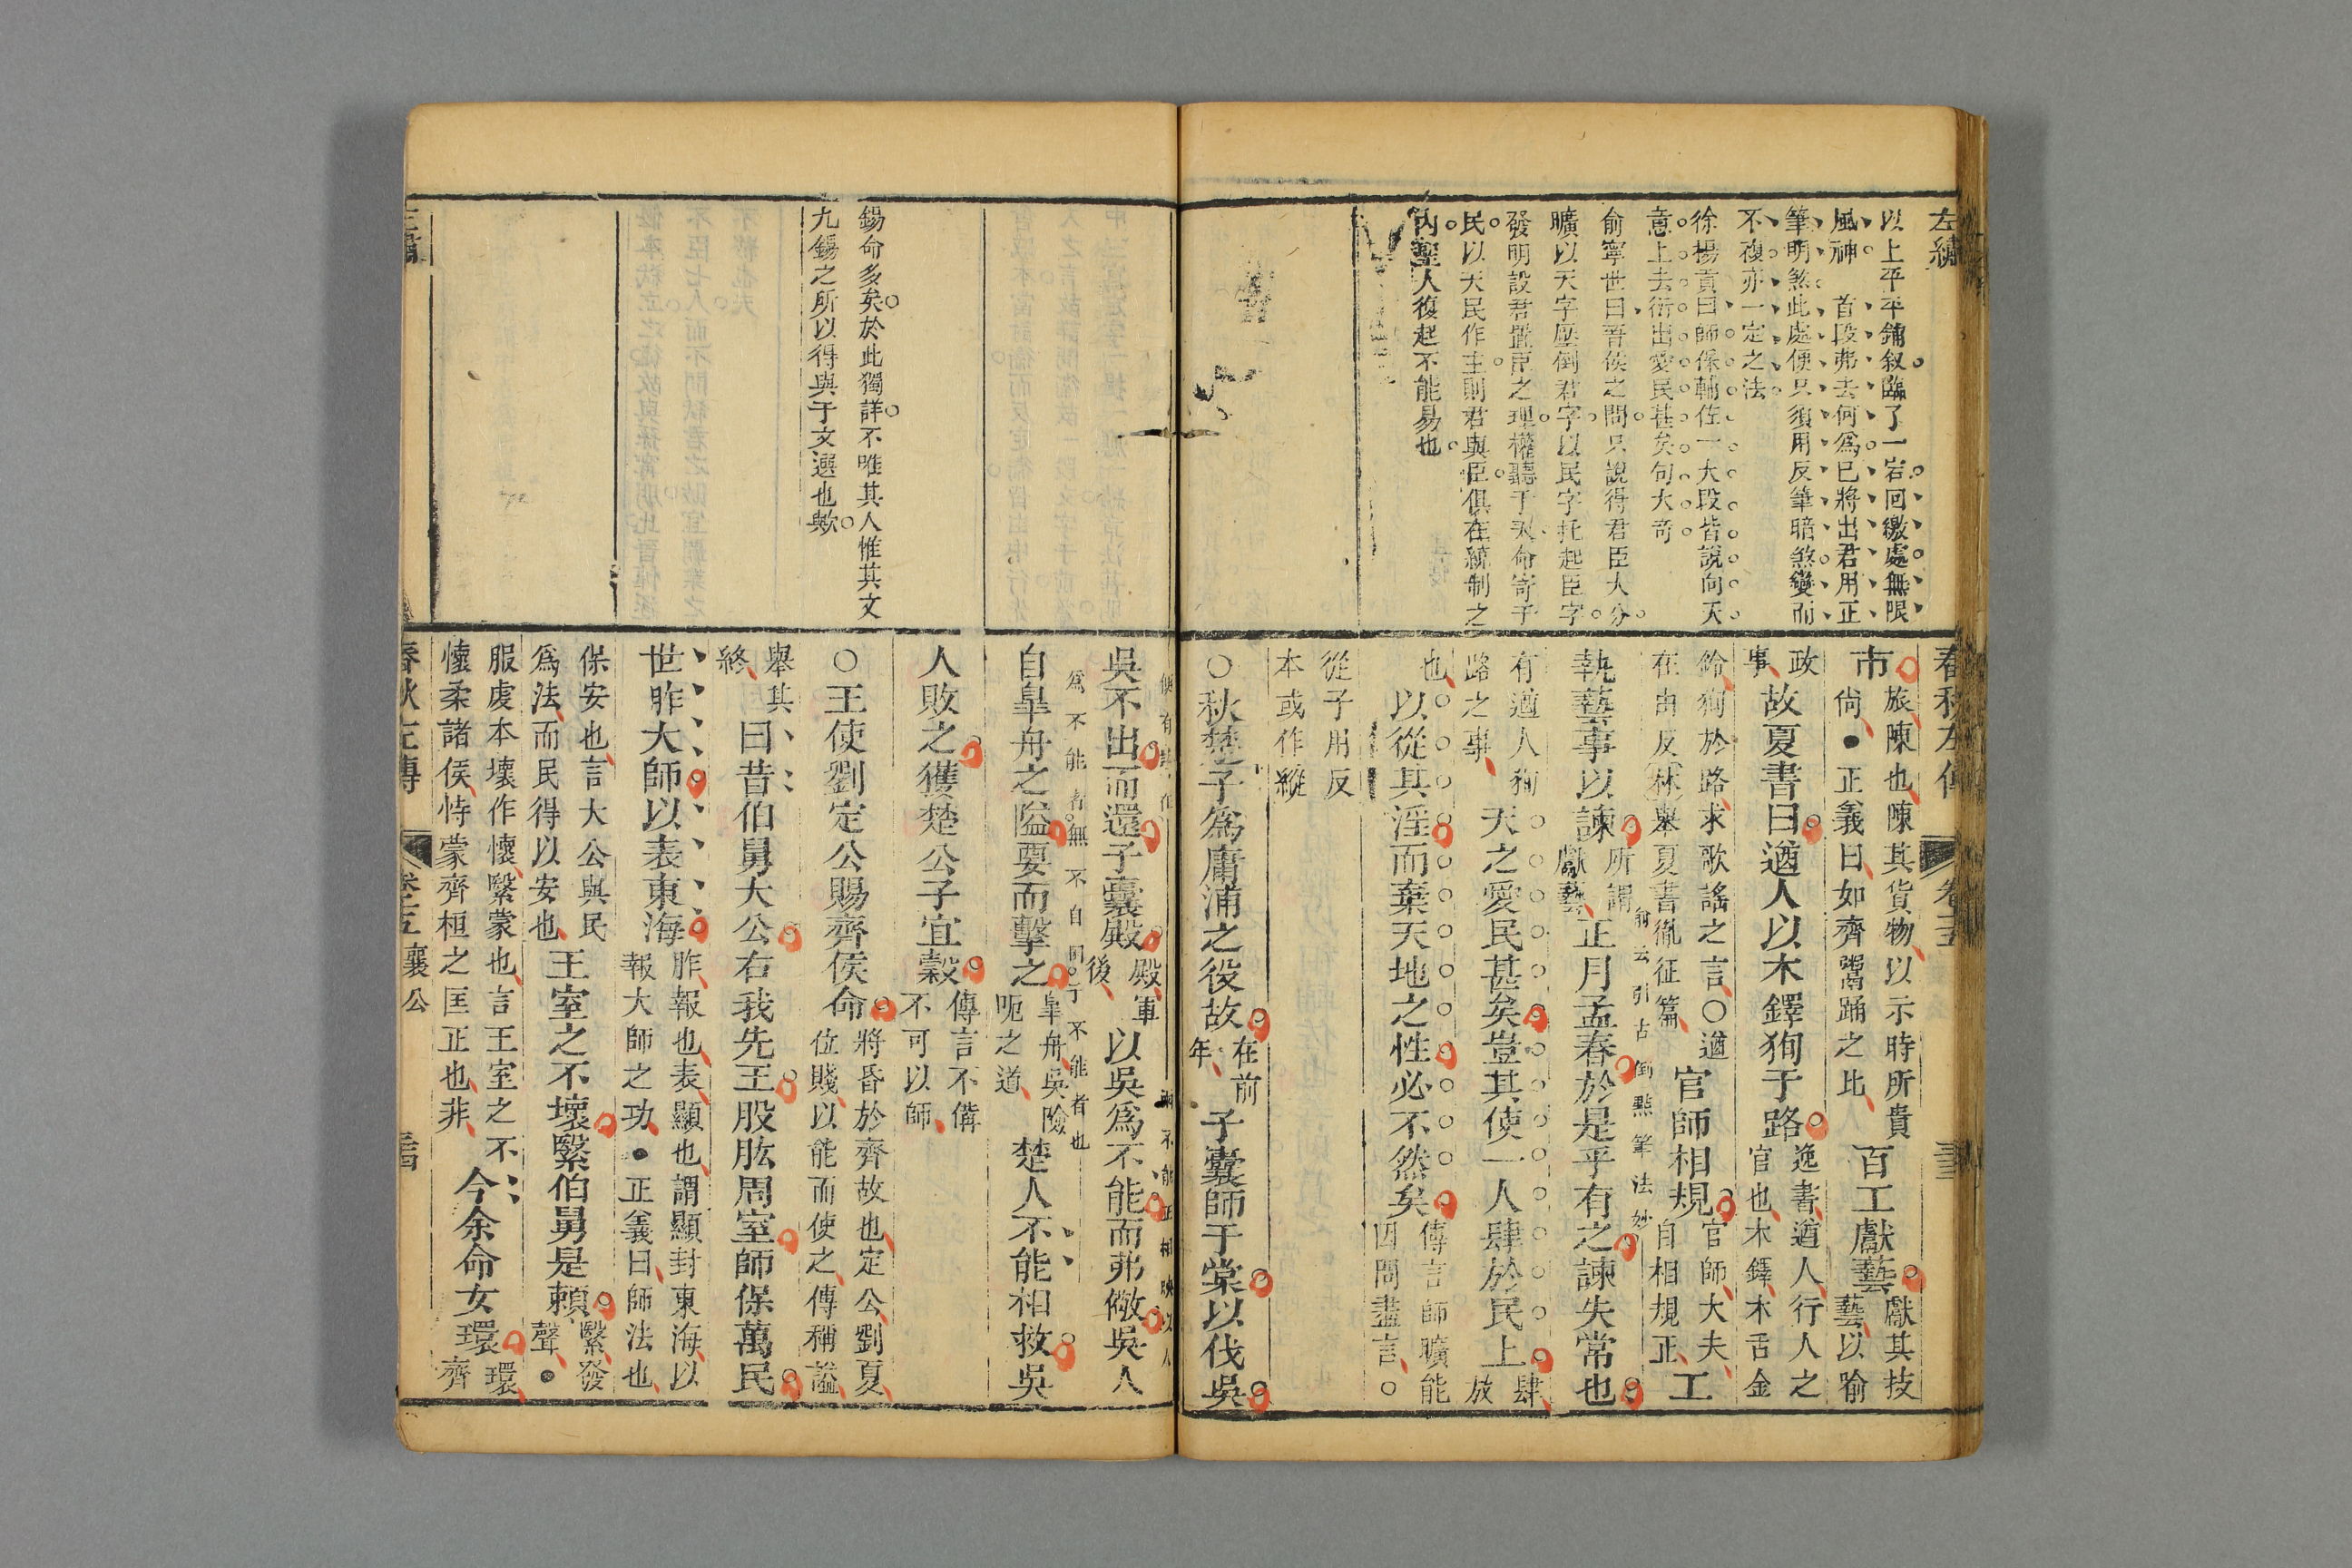 左繡
以上平平鋪叙臨了一宕回繳處無限
風神　首段弗去何爲已將出君用正
筆明煞此處便只須用反筆暗煞變而
不複亦一定之法
徐揚貢曰師保輔佐一大段皆說向天
意上去衍出愛民甚矣句大奇
俞寧世曰晉侯之問只說得君臣大分
曠以天字壓倒君字以民字托起臣字
發明設君置臣之理權聽于天命寄于
民以天民作主則君與臣俱在統制之
內聖人復起不能易也
春秋左傳　卷十五
市旅陳也陳其貨物以示時所貴
尙●正義曰如齊鬻踊之比　百工獻藝獻其技
藝以喻
政
事　故夏書曰遒人以木鐸徇于路逸書遒人行人之
官也木鐸木舌金
鈴徇於路求歌謠之言○遒
在由反林舉夏書胤征篇　官師相規官師大夫
自相規正　工
執藝事以諫所謂
獻藝　正月孟春於是乎有之諫失常也
俞云引古倒點筆法妙
有遒人徇
路之事　天之愛民甚矣豈其使一人肆於民上肆
放
也　以從其淫而棄天地之性必不然矣傳言師曠能
因問盡言○
從子用反
本或作縱
○秋楚子爲庸浦之役故在前
年　子囊師于棠以伐吳
吳不出而還子囊殿殿軍
後　以吳爲不能而弗儆吳人
自皐舟之隘要而擊之皐舟吳險
呃之道　楚人不能相救吳
人敗之獲楚公子宜穀傳言不備
不可以師
○王使劉定公賜齊侯命將昏於齊故也定公劉夏
位賤以能而使之傳稱謚
舉其
終　曰昔伯舅大公右我先王股肱周室師保萬民
世胙大師以表東海胙報也表顯也謂顯封東海以
報大師之功●正義曰師法也
保安也言大公與民
爲法而民得以安也　王室之不壞緊伯舅是賴繄發
聲●
服虔本壞作懷繄蒙也言王室之不
懷柔諸侯恃蒙齊桓之匡正也非　今余命女環環
齊
錫命多矣於此獨詳不唯其人惟其文
九錫之所以得與于文選也歟
春秋左傳　卷十五　襄公